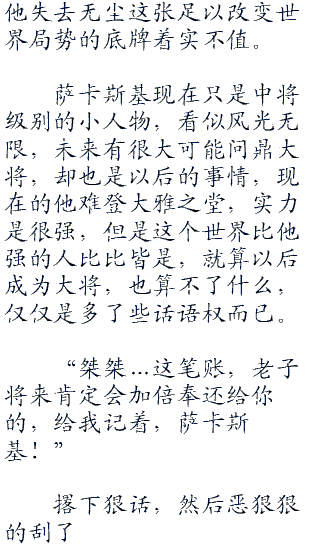 他失去无尘这张足以改变世
界局势的底牌着实不值。
萨卡斯基现在只是中将
级别的小人物，看似风光无
限，未来有很大可能问鼎大
将，却也是以后的事情，现
在的他难登大雅之堂，实力
是很强，但是这个世界比他
强的人比比皆是，就算以后
成为大将，也算不了什么，
仅仅是多了些话语权而已。
“桀桀…这笔账，老子
将来肯定会加倍奉还给你
的，给我记着，萨卡斯
基！”
撂下狠话，然后恶狠狠
的刮了